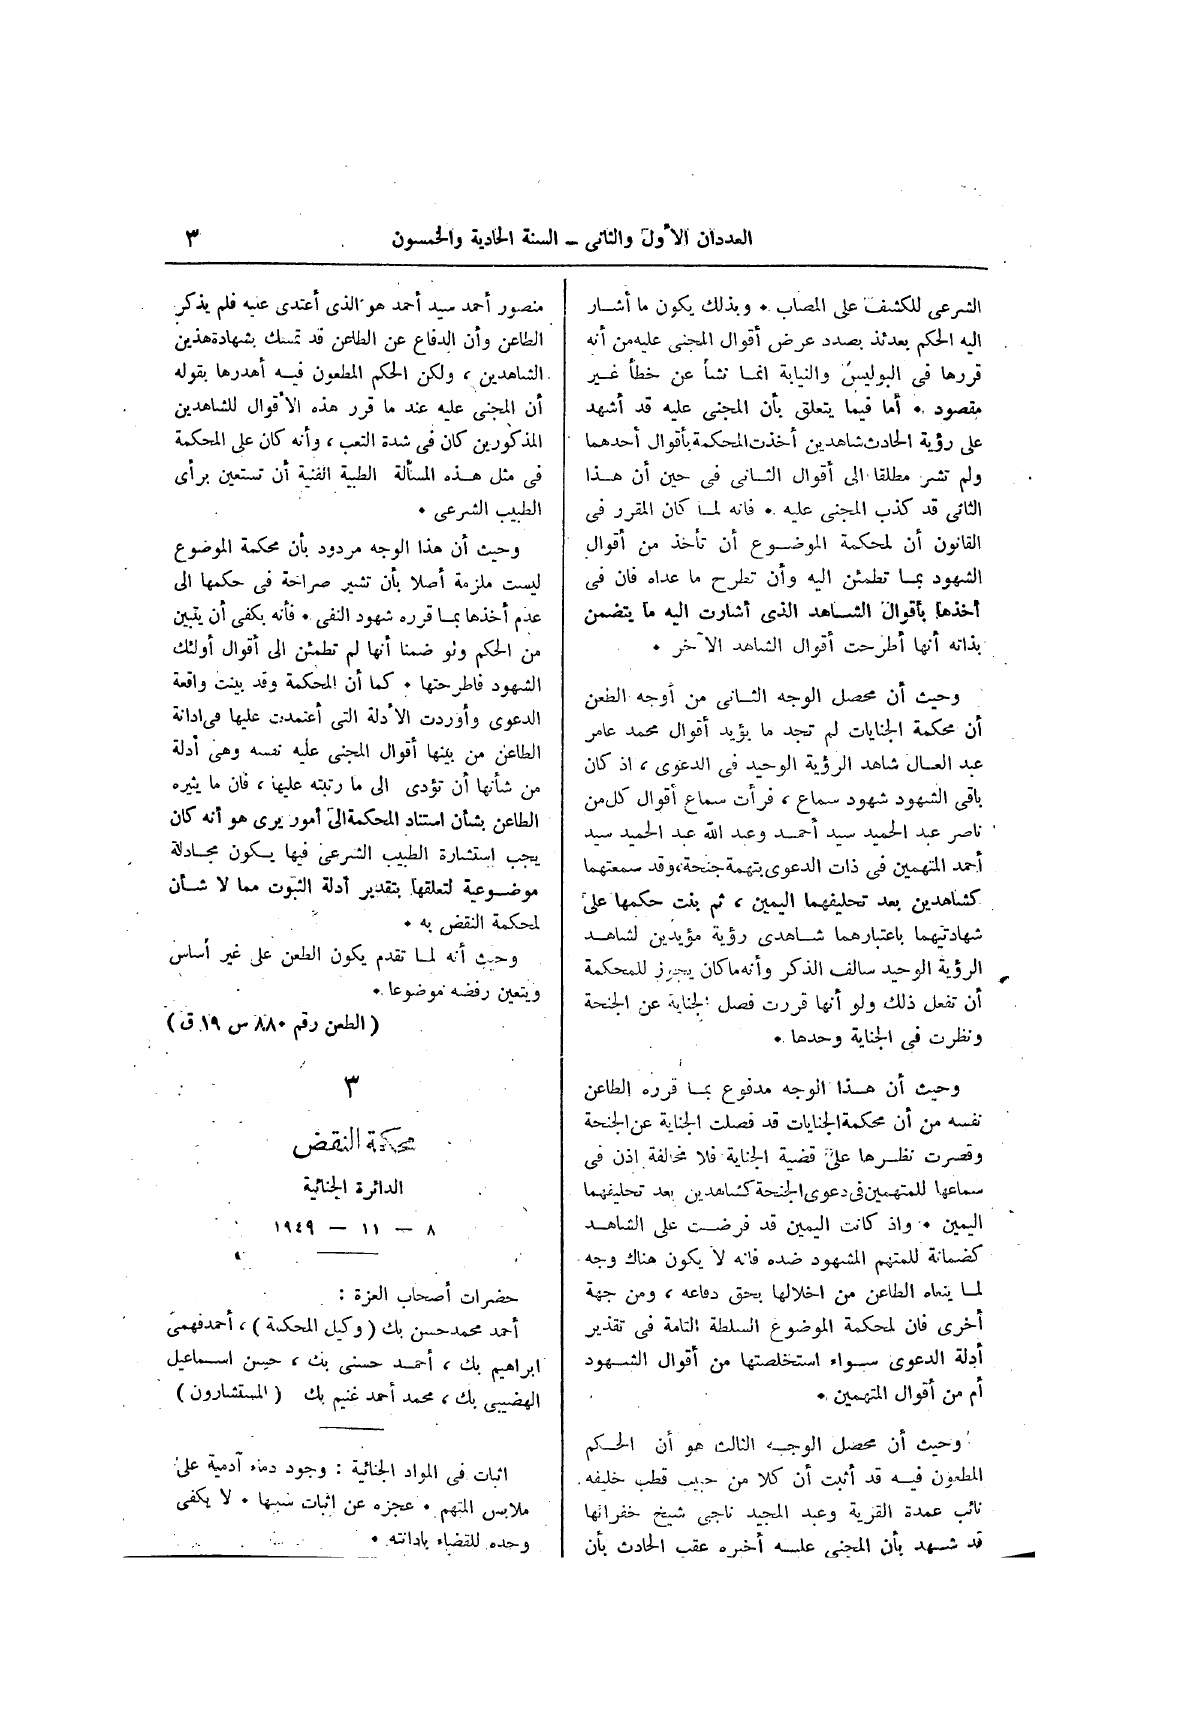 العددان الأول والثانى – السنة الحادية والخمسون ٣
الشرعى للكشف على المصاب • وبذلك يكون ما أشار
اليه الحكم بعدئذ بصدد عرض أقوال المجنى عليه من أنه
قررها فى البوليس والنيابة انما نشأ عن خطأ غير
مقصود • أما فيما يتعلق بأن المجنى عليه قد أشهد
على رؤية الحادث شاهدين أخذت المحكمة بأقوال أحدهما
ولم تشر مطلقا الى أقوال الثانى فى حين أن هذا
الثانى قد كذب المجنى عليه • فانه لما كان المقرر فى
القانون أن لمحكمة الموضوع أن تأخذ من أقوال
الشهود بما تطمئن اليه وأن تطرح ما عداه فان فى
أخذها بأقوال الشاهد الذى أشارت اليه ما يتضمن
بذاته أنها أطرحت أقوال الشاهد الآخر •
وحيث أن محصل الوجه الثانى من أوجه الطعن
أن محكمة الجنايات لم تجد ما يؤيد أقوال محمد عامر
عبد العال شاهد الرؤية الوحيد فى الدعوى ، اذ كان
باقى الشهود شهود سماع ، فرأت سماع أقوال كل من
ناصر عبد الحميد سيد أحمد وعبد الله عبد الحميد سيد
أحمد المتهمين فى ذات الدعوى بتهمة جنحة، وقد سمعتهما
كشاهدين بعد تحليفهما اليمين ، ثم بنت حكمها على
شهادتيهما باعتبارهما شاهدى رؤية مؤيدين لشاهد
الرؤية الوحيد سالف الذكر وأنه ما كان يجوز للمحكمة
أن تفعل ذلك ولو أنها قررت فصل الجناية عن الجنحة
ونظرت فى الجناية وحدها •
وحيث أن هذا الوجه مدفوع بما قرره الطاعن
نفسه من أن محكمة الجنايات قد فصلت الجناية عن الجنحة
وقصرت نظرها على قضية الجناية فلا مخالفة اذن فى
سماعها للمتهمين فى دعوى الجنحة كشاهدين بعد تحليفهما
اليمين • واذ كانت اليمين قد فرضت على الشاهد
كضمانة للمتهم المشهود ضده فانه لا يكون هناك وجه
لما ينعاه الطاعن من اخلالها بحق دفاعه ، ومن جهة
أخرى فان لمحكمة الموضوع السلطة التامة فى تقدير
أدلة الدعوى سواء استخلصتها من أقوال الشهود
أم من أقوال المتهمين •
وحيث أن محصل الوجه الثالث هو أن الحكم
المطعون فيه قد أثبت أن كلا من حبيب قطب خليفه
نائب عمدة القرية وعبد المجيد ناجى شيخ خفرائها
قد شهد بأن المجنى عليه أخبره عقب الحادث بأن
منصور أحمد سيد أحمد هو الذى أعتدى عليه فلم يذكر
الطاعن وأن الدفاع عن الطاعن قد تمسك بشهادة هذين
الشاهدين ، ولكن الحكم المطعون فيه أهدرها بقوله
أن المجنى عليه عند ما قرر هذه الأقوال للشاهدين
المذكورين كان فى شدة التعب ، وأنه كان على المحكمة
فى مثل هذه المسألة الطبية الفنية أن تستعين برأى
الطبيب الشرعى •
وحيث أن هذا الوجه مردود بأن محكمة الموضوع
ليست ملزمة أصلا بأن تشير صراحة فى حكمها الى
عدم أخذها بما قرره شهود النفى • فأنه يكفى أن يتبين
من الحكم ولو ضمنا أنها لم تطمئن الى أقوال أولئك
الشهود فاطرحتها • كما أن المحكمة وقد بينت واقعة
الدعوى وأوردت الأدلة التى أعتمدت عليها فى ادانة
الطاعن من بينها أقوال المجنى عليه نفسه وهى أدلة
من شأنها أن تؤدى الى ما رتبته عليها ، فان ما يثيره
الطاعن بشأن استناد المحكمة الى أمور يرى هو أنه كان
يجب استشارة الطبيب الشرعى فيها يكون مجادلة
موضوعية لتعلقها بتقدير أدلة الثبوت مما لا شأن
لمحكمة النقض به •
وحيث أنه لما تقدم يكون الطعن على غير أساس
ويتعين رفضه موضوعا •
( الطعن رقم ٨٨٠ س ١٩ ق )
٣
محكمة النقض
الدائرة الجنائية
٨ – ١١ – ١٩٤٩
حضرات أصحاب العزة :
أحمد محمد حسن بك ( وكيل المحكمة ) ، أحمد فهمى
ابراهيم بك ، أحمد حسنى بك ، حسن اسماعيل
الهضيبى بك ، محمد أحمد غنيم بك ( المستشارون )
اثبات فى المواد الجنائية : وجود دماء آدمية على
ملابس المتهم • عجزه عن اثبات سببها • لا يكفى
وحده للقضاء بادانته •